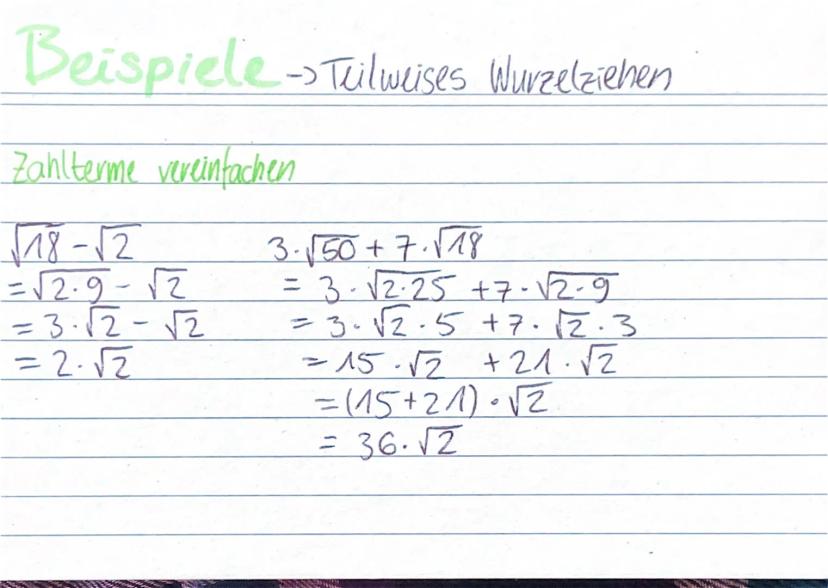 Beispiele -> Teilweises Wurzelziehen
Zahlterme vereinfachen
√18 - √2
= √2·9 - √2
= 3·√2 - √2
= 2·√2
3·√50 + 7·√18
= 3·√2·25 + 7·√2·9
= 3·√2·5 + 7·√2·3
= 15·√2 + 21·√2
= (15+21)·√2
= 36·√2